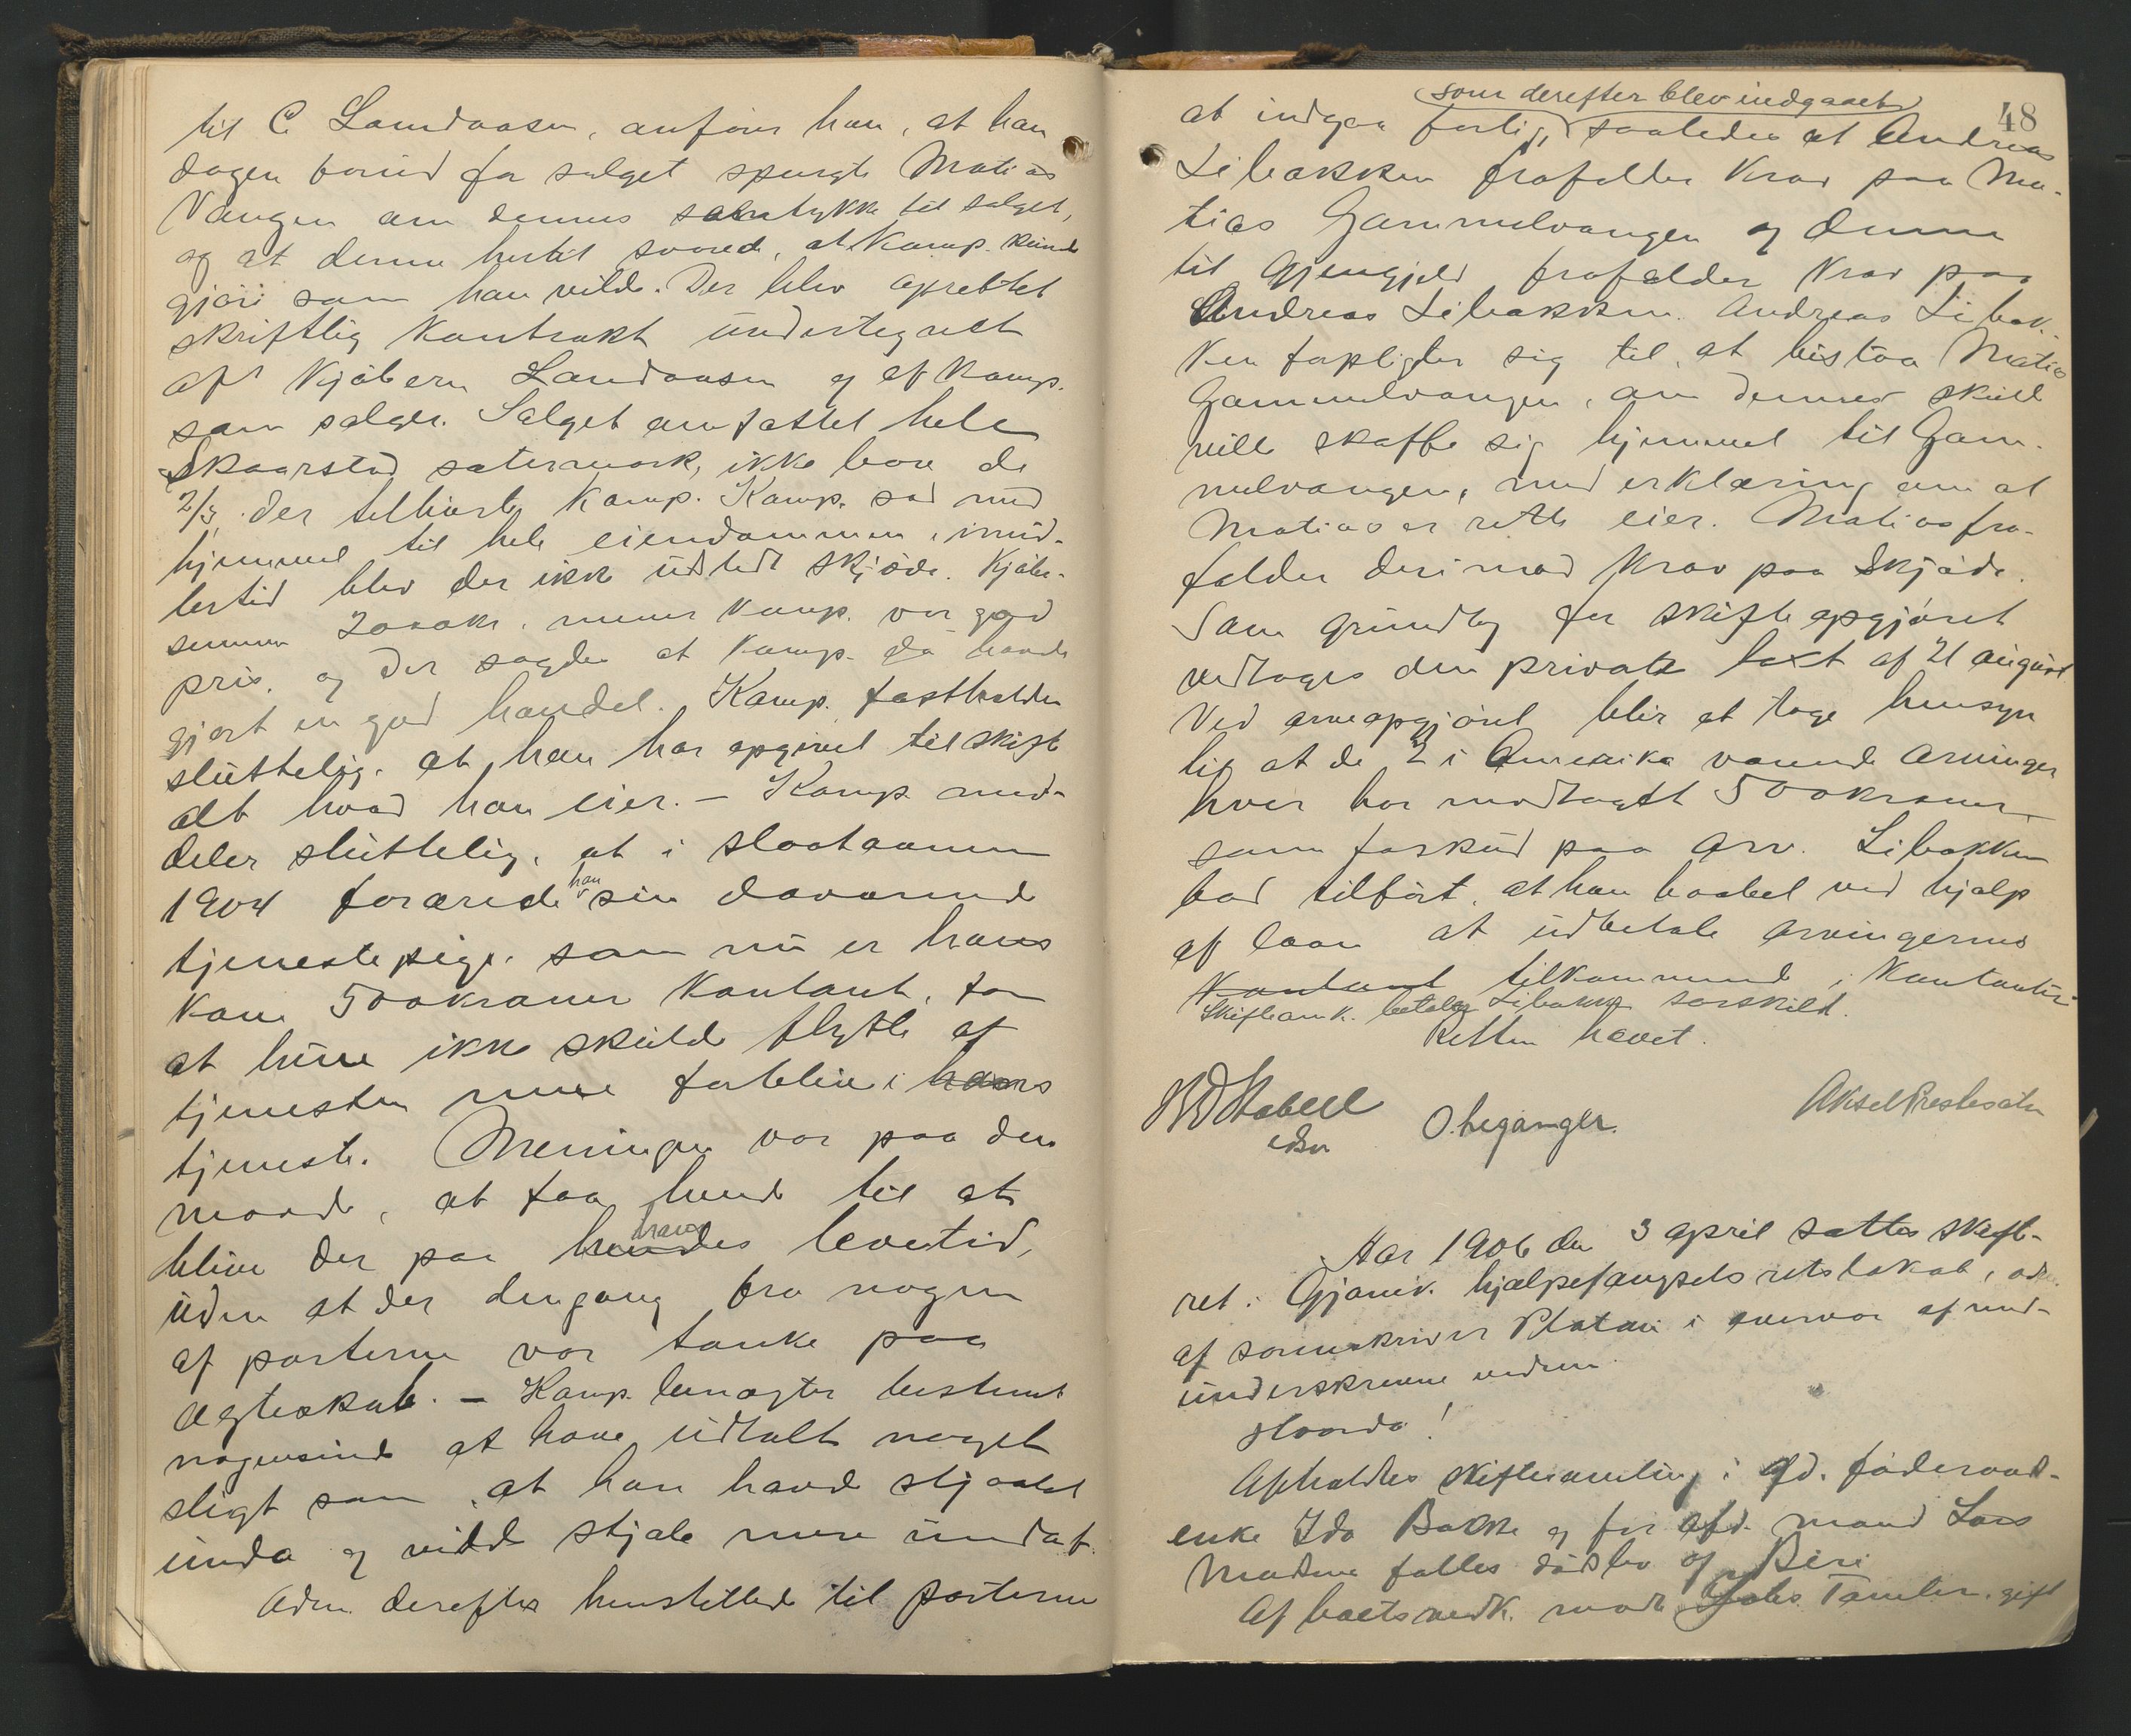 til C. Landaasen, anfører han, at han
dagen forud for salget spurgte Matias
Vangen om dennes samtykke til salget,
og at denne hertil svarede, at Kamp. kunde
gjøre som han vilde. Der blev oprettet
skriftlig kontrakt undertegnet
af Kjøberen Landaasen og af Kamp.
som sælger. Salget omfattet hele
Skaarstad sætermark, ikke bare de
2/3, der tilhørte Kamp. Kamp. sad med
hjemmel til hele eiendommen, imid-
lertid blev der ikke udstedt skjøde. Kjøbe-
summen 2000 kr. mener Kamp. var god
pris, og der sagdes at Kamp. da havde
gjort en god handel. Kamp. fastholder
sluttelig, at han har opgivet til skifte
alt hvad han eier. – Kamp. med-
deler sluttelig, at i slaataannen
1904 forærede han sin daværende
tjenestepige, som nu er hans
kone 500 kroner kontant, for
at hun ikke skulde flytte af
tjenesten men forblive i hans
tjeneste. Meningen var paa den
maade, at faa hende til at
blive der paa hendes hans levetid,
uden at der dengang fra nogen
af parterne var tanke paa
ægteskab. – Kamp. benægter bestemt
nogensinde at have udtalt noget
sligt som, at han havde stjaalet
unda og vilde stjæle mere undaf.
Adm. derefter henstillede til parterne
48
som derefter blev indgaaet
at indgaa forlig, saaledes at Andreas
Libakken frafalder krav paa Ma-
tias Gammelvangen og denne
til gjengjeld frafalder krav paa
Andreas Libakken. Andreas Libak-
ken forpligter sig til, at bistaa Matias
Gammelvangen, om dennes skuld
ville skaffe sig hjemmel til Gam-
melvangen, med erklæring om at
Matias er rette eier. Matias fra-
falder derimod krav paa Skjøde.
Som grundlag for skifteopgjøret
vedtages den private taxt af 21 august
Ved arveopgjøret blir at tage hensyn
til at de 2 i Amerika værende arvinger
hver har modtaget 500 kroner
som forskud paa arv. Libakken
bad tilført, at han haabet ved hjælp
af laan at udbetale arvingernes
Kontant tilkommende i kontanter
Skifteomk. betaler Libakken særskilt.
Retten hævet.
O. Leganger. Aksel Prestesæter
Aar 1906 den 3 april sattes skifte-
ret i Gjøvik hjælpefængsels retslokal, adm.
af sorenskriver Platou i overvær af med-
underskrevne vidner
Haarde!
Afholdtes skiftesamling i afd. føderaads-
enke Ida Bakke og før afd. mand Lars
Madsens fælles dødsbo af Biri
Af boets vedk. mødte Johs. Tømten, gift